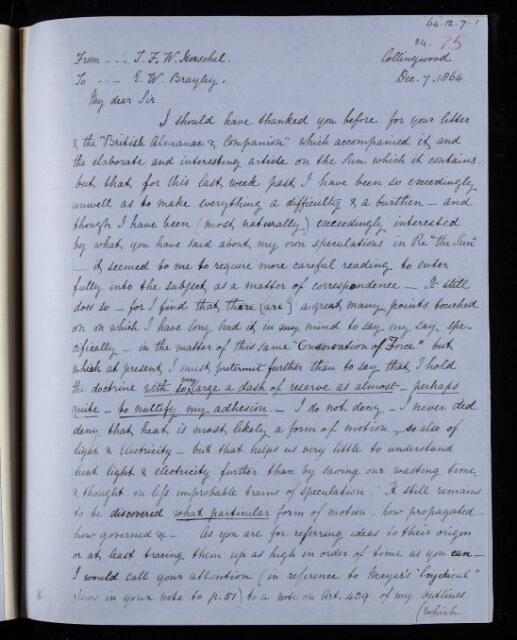 64.12.7.1
24. 75
From - - - J. F. W. Herschel. Collingwood
To - - - E. W. Brayley. Dec. 7. 1864
My dear Sir
I should have thanked you before for your letter
& the "British Almanac & Companion" which accompanied it, and
the elaborate and interesting article on the Sun which it contains.
but that for this last week past I have been so exceedingly
unwell as to make everything a difficulty & a burthen — and
though I have been (most naturally) exceedingly interested
by what you have said about my own speculations in Re "the Sun"
— it seemed to me to require more careful reading to enter
fully into the subject as a matter of correspondence — It still
does so — for I find that there (are) a great many points touched
on on which I have long had it in my mind to say my say spe-
cifically — in the matter of this same "Conservation of Force" but
which at present, I must pretermit further than to say that I hold
the doctrine with so very large a dash of reserve as almost — perhaps
quite — to nullify my adhesion. — I do not deny — I never did
deny that heat is most likely a form of motion so also of
light & Electricity — but that helps us very little to understand
heat light & electricity further than by saving our wasting time
& thought on less improbable trains of speculation. It still remains
to be discovered what particular form of motion — how propagated —
how governed &c — As you are for referring ideas to their origin
or at least tracing them up as high in order of time as you can —
I would call your attention (in reference to Mayer's
views in your note to p. 51) to a note on Art. 439 of my Outlines
(which